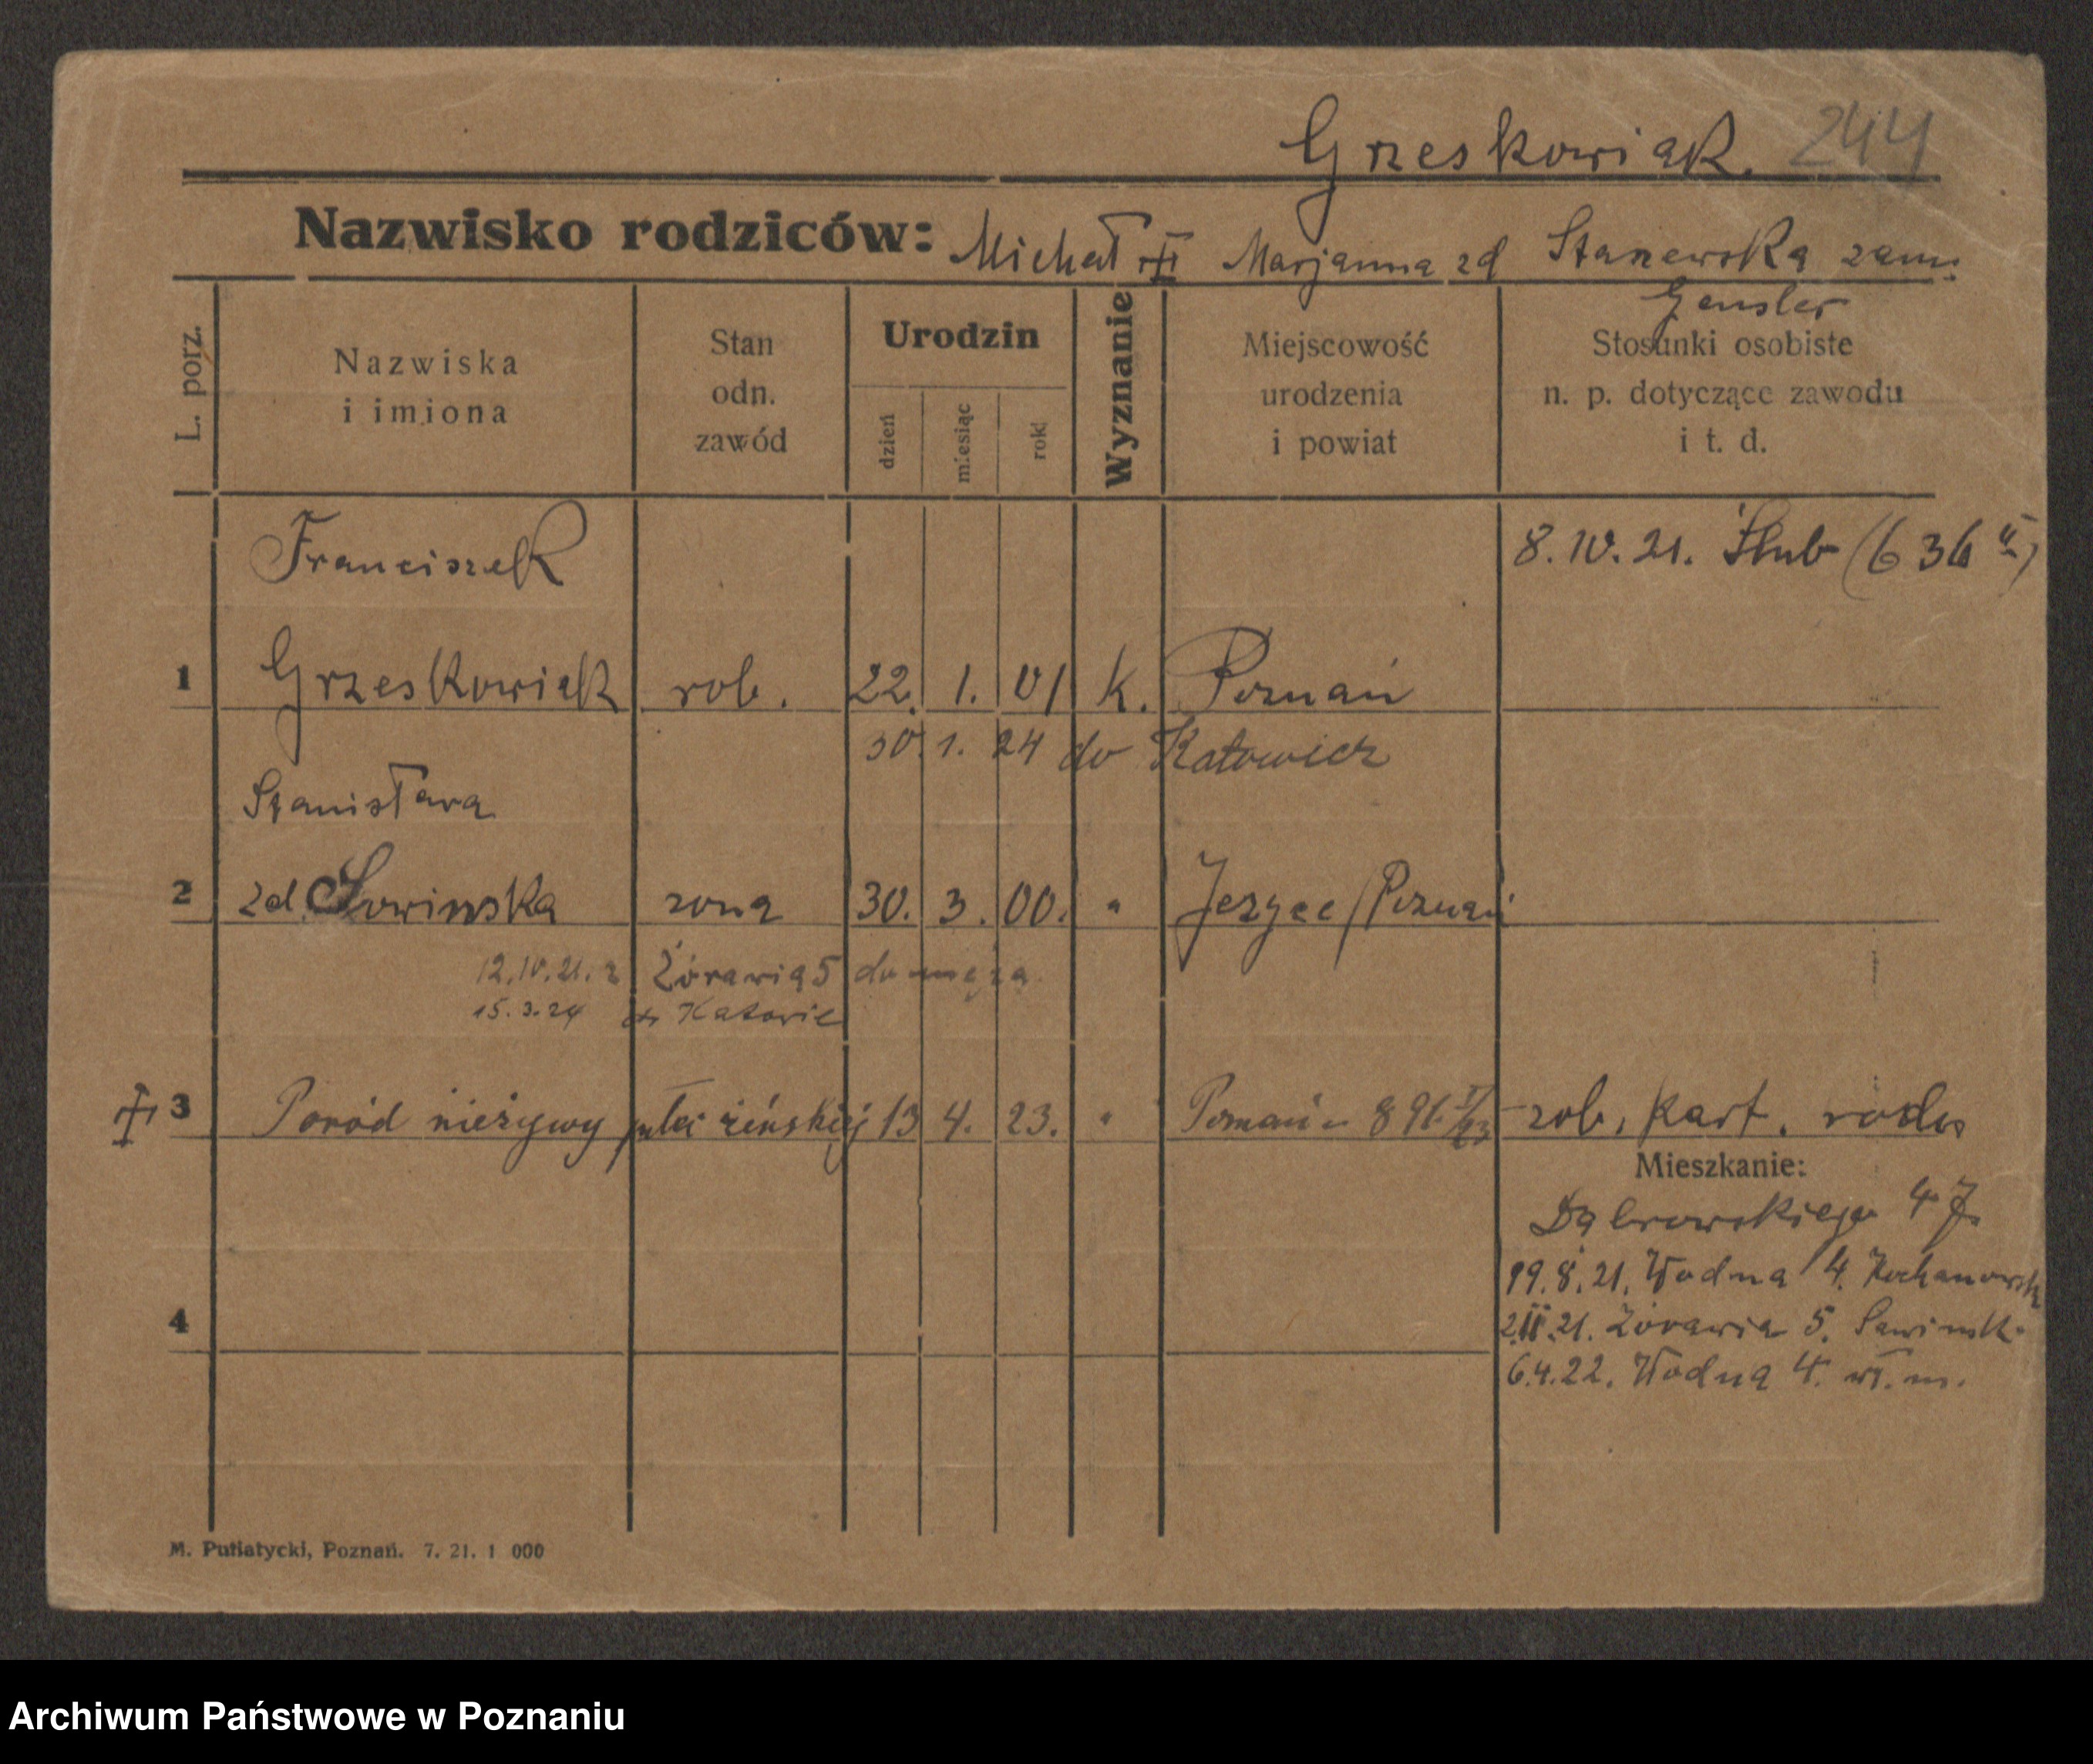 Grzeskowiak. 244
Nazwisko rodziców: Michał Marjanna zd Stanewska zam:
Gensler
L. porz.
Nazwiska
i imiona
Stan
odn.
zawód
Urodzin
dzień
miesiąc
rok
Wyznanie
Miejscowość
urodzenia
i powiat
Stosunki osobiste
n. p. dotyczące zawodu
i t. d.
Franciszek 8. IV. 21. Ślub (636 II)
1 Grzeskowiak rob. 22. 1. 01 K. Poznań
30. 1. 24 do Katowicz
Stanisława
2 zd Sowinska zona 30. 3. 00. " Jezyce/Poznań
12. IV. 21. z Żórawia 5 do męża
15. 3. 24 Katowic
3 Poród nieżywy płci żeńskiej 13 4. 23. " Poznań 896 rob. kart. rodz
Mieszkanie:
Dąbrowskiego 47.
19. 8. 21. Wodna 4. Kochanowsk
2.II.21. Żórawia 5. Sawinsk.
4
6.4.22. Wodna 4. wł. m.
M. Putiatycki, Poznań. 7. 21. 1 000
Archiwum Państwowe w Poznaniu